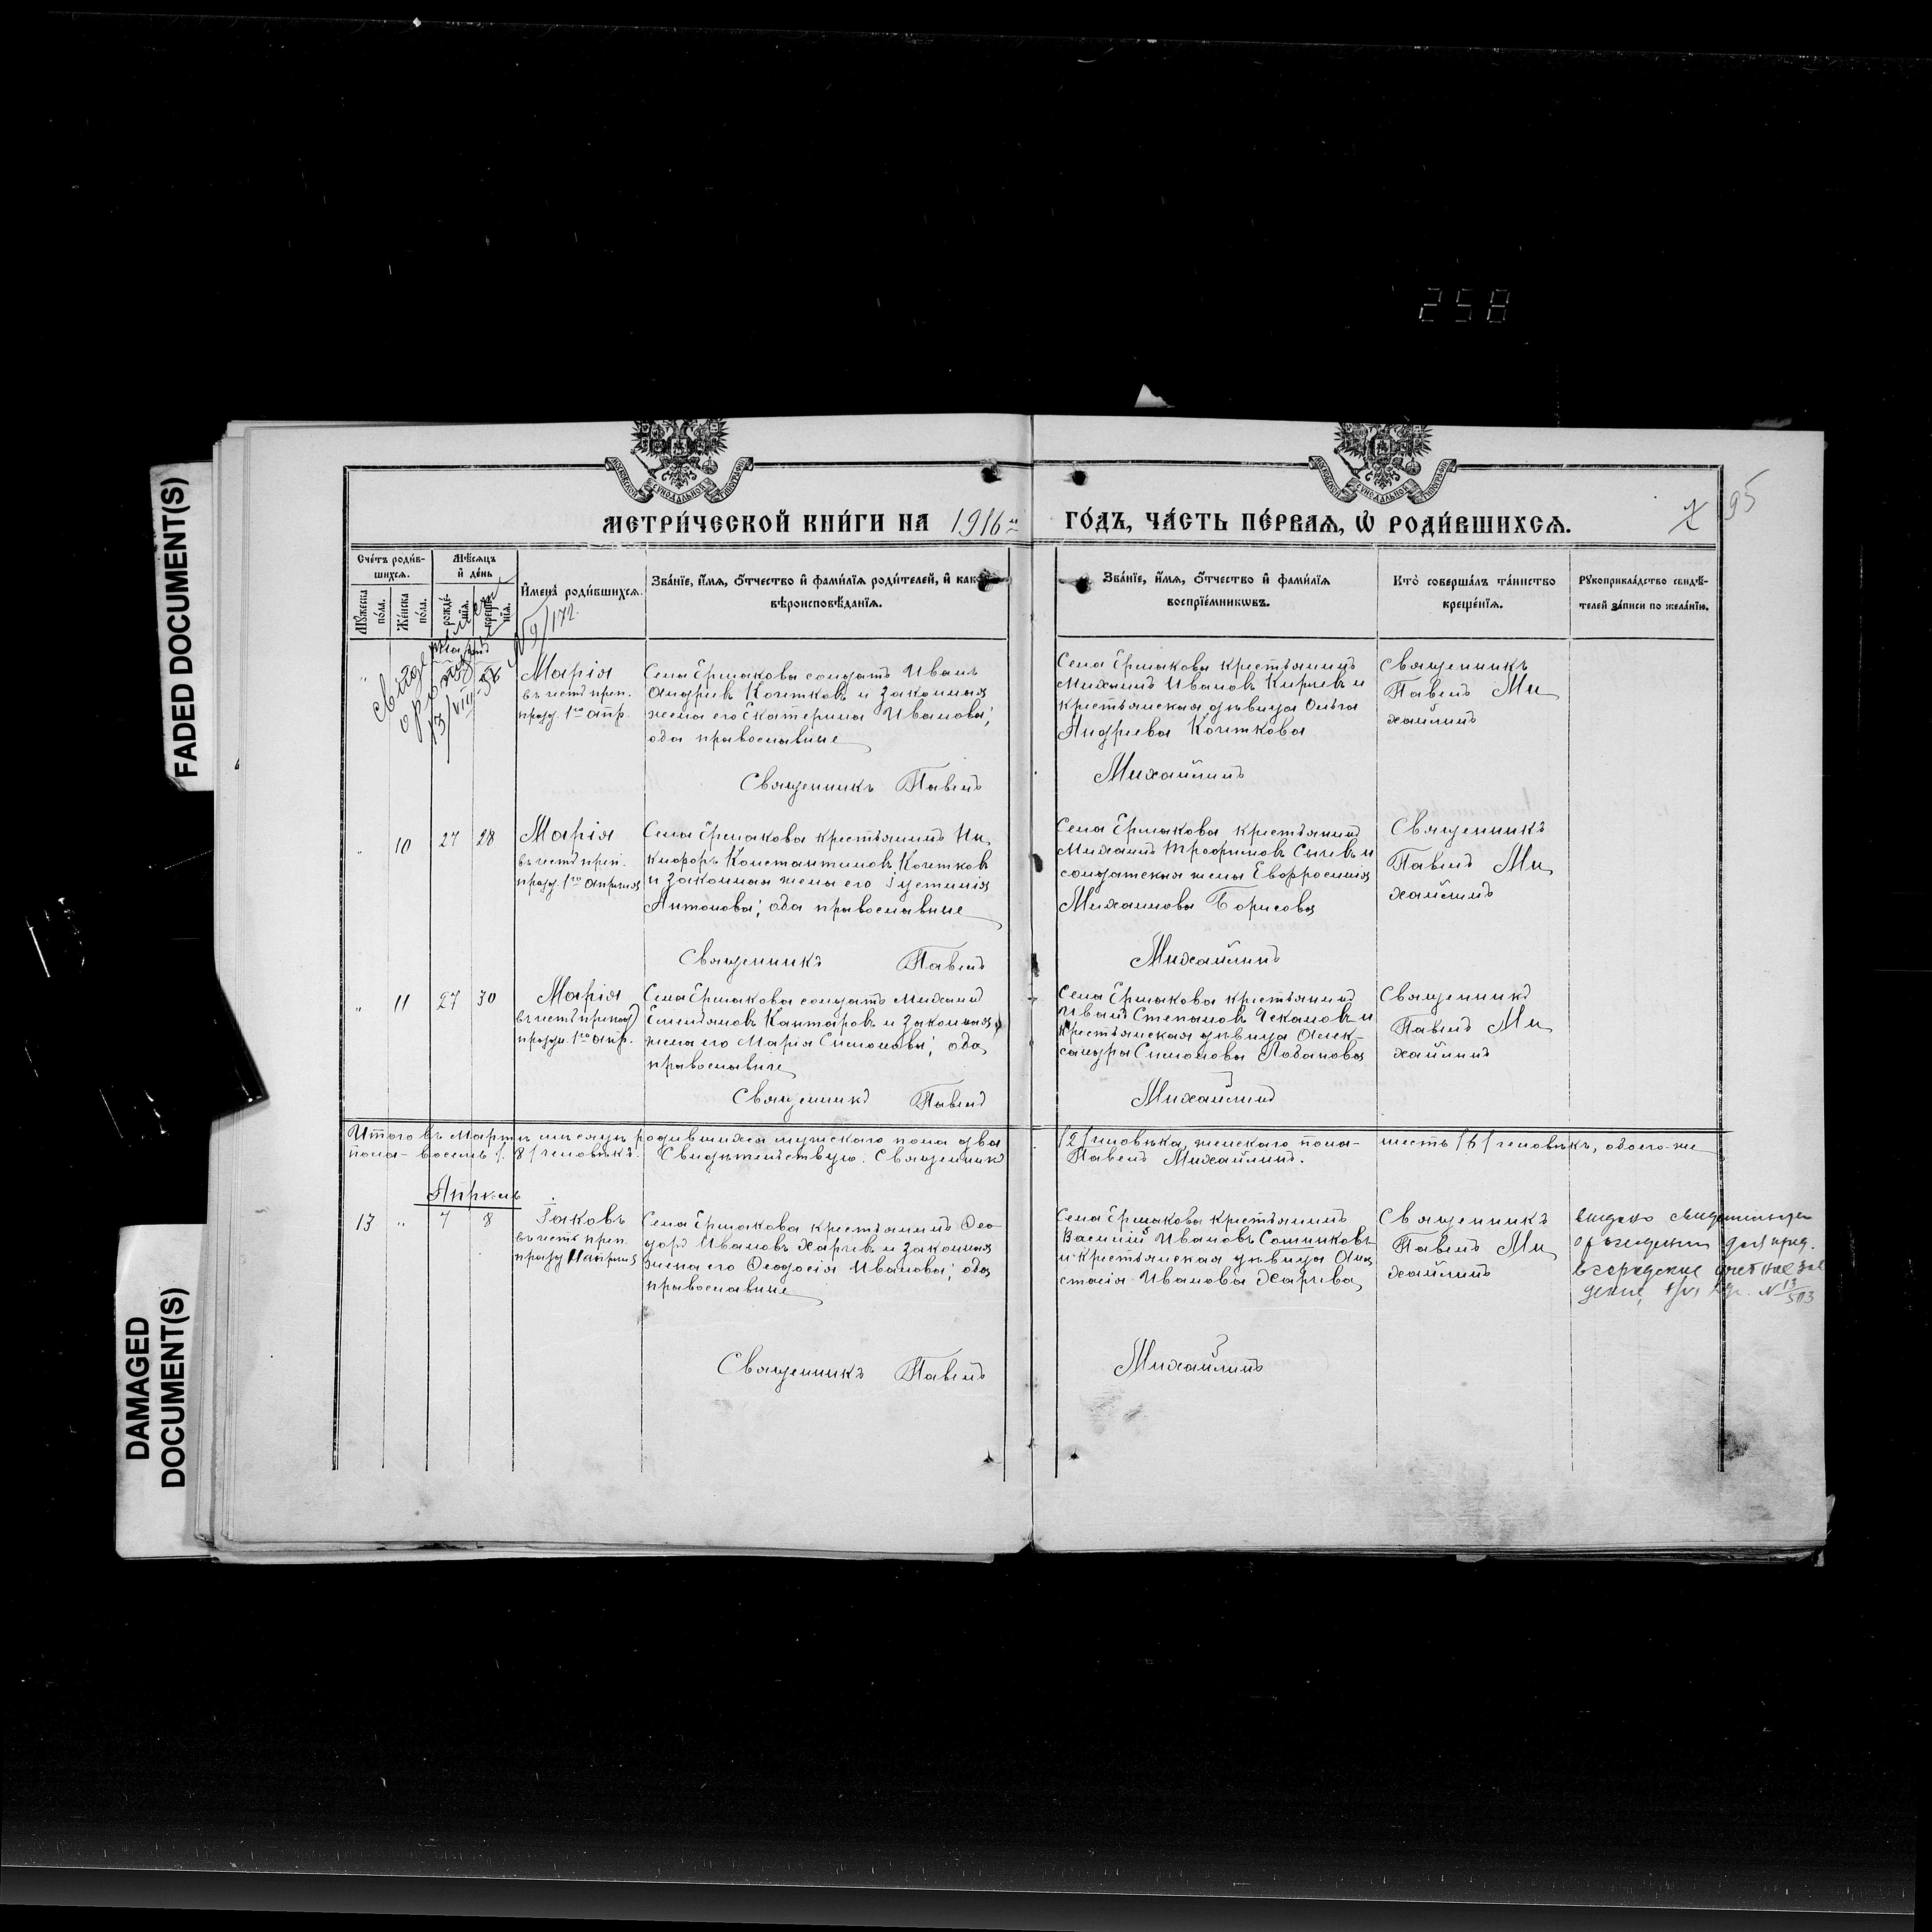 258
FADED DOCUMENT(S)
DAMAGED
DOCUMENT(S)
МОСКОВСКОЙ СѴНОДАЛЬНОЙ ТИПОГРАФІИ
МОСКОВСКОЙ СѴНОДАЛЬНОЙ ТИПОГРАФІИ
95
МЕТРИ́ЧЕСКОЙ КНИ́ГИ НА 1916й ГО́ДЪ, ЧА́СТЬ ПЕ́РВАЯ, Ѡ РОДИ́ВШИХСЯ.
Сче́тъ роди́в-
шихся.
Мѣ́сяцъ
и҆ де́нь
Мꙋ́жеска
по́ла.
Же́нска
по́ла.
рожде́-
нія.
креще́-
нія.
И҆мена̀ роди́вшихся.
Зва́ніе, и҆́мя, ѻ҆́тчество и҆ фами́лія роди́телей, и҆ како́
вѣроисповѣ́данія.
Зва́ніе, и҆́мя, ѻ҆́тчество и҆ фами́лія
воспріе́мникωвъ.
Кто̀ соверша́лъ та́инство
креще́нія.
Рꙋкоприкла́дство свидѣ́-
телей за́писи по жела́нію.
№ 9/172.
13/VIII-56
Марія
въ честь преп.
празд. 1го апр.
Села Ермакова солдатъ Иванъ
Андреевъ Кочетковъ и законная
жена его Екатерина Иванова;
оба православные
Священникъ Павелъ
Села Ермакова крестьянинъ
Михаилъ Ивановъ Киреевъ и
крестьянская дѣвица Ольга
Андреева Кочеткова
Михайлинъ
Священникъ
Павелъ Ми
хайлинъ
" 10 27 28
Марія
въ честь преп.
празд. 1го апреля
Села Ермакова крестьянинъ Ни
кифоръ Константиновъ Кочетковъ
и законная жена его Іустинія
Антонова; оба православные
Священникъ Павелъ
Села Ермакова крестьянинъ
Михаилъ Трофимовъ Сычевъ и
солдатская жена Евфросинія
Михаилова Борисова
Михайлинъ
Священникъ
Павелъ Ми
хайлинъ
" 11 27 30
Марія
въ честь препод
праздн. 1го апр.
Села Ермакова солдатъ Михаилъ
Емельяновъ Кантаровъ и законная
жена его Марія Симонова; оба
православные
Священникъ Павелъ
Села Ермакова крестьянинъ
Иванъ Степановъ Чекановъ и
крестьянская дѣвица Алек-
сандра Симонова Лобанова
Михайлинъ
Священникъ
Павелъ Ми
хайлинъ
Итого въ Мартѣ мѣсяцѣ родившихся мужскаго пола два /2/ человѣка, женскаго пола- шесть /6/ человѣкъ, обоего-же
пола- восемь /8/ человѣкъ. Свидѣтельствую. Священникъ Павелъ Михайлинъ.
Апрѣль
13 " 7 8
Іаковъ
въ честь преп.
Села Ермакова крестьянинъ Ѳео-
доръ Ивановъ Харчевъ и законная
жена его Ѳеодосія Иванова; оба
православные
Священникъ Павелъ
Села Ермакова крестьянинъ
Василій Ивановъ Сотниковъ
и крестьянская дѣвица Ана
стасія Иванова Харчева
Михайлинъ
Священникъ
Павелъ Ми
хайлинъ
о рождении для пред.
№ 13/503